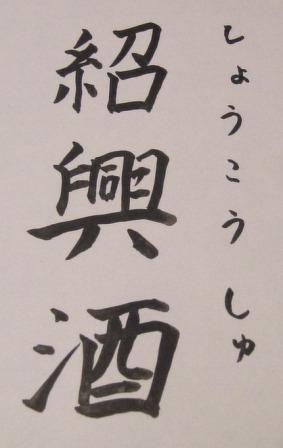 しょうこうしゅ
紹興酒